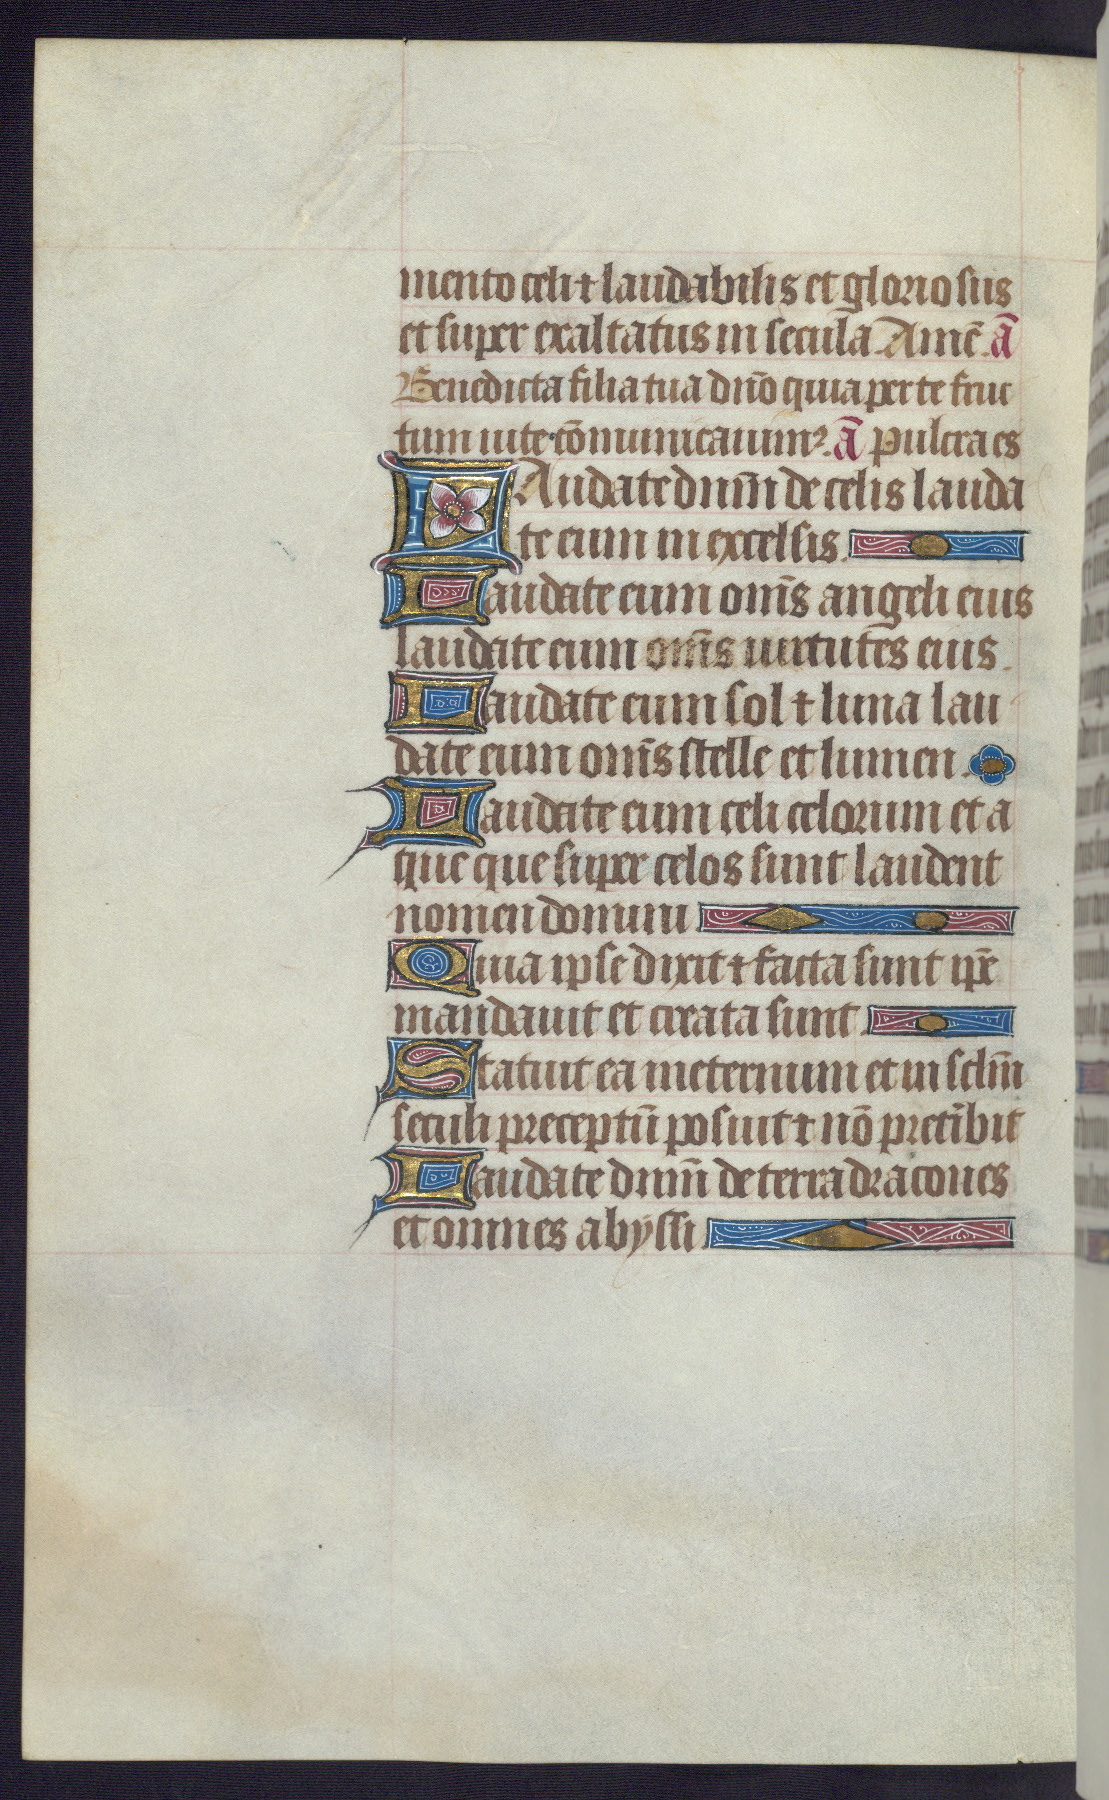 mento celi ⁊ laudabilis et gloriosus
et super exaltatus in secula. Amē. ā
Benedicta filia tua dnō quia per te fruc
tum uite cōmunicauimꝰ. ā Pulcra es
LAudate dnm̄ de celis lauda
te eum in excelsis.
Laudate eum om̄s angeli eius
laudate eum om̄s uirtutes eius.
Laudate eum sol ⁊ luna lau
date eum om̄s stelle et lumen.
Laudate eum celi celorum et a
que que super celos sunt laudent
nomen domini
Quia ipse dixit ⁊ facta sunt ip̄e
mandauit et creata sunt.
Statuit ea ineternum et in sclm̄
seculi preceptū posuit ⁊ nō pretībit
Laudate dnm̄ de terra dracones
et omnes abyssi.